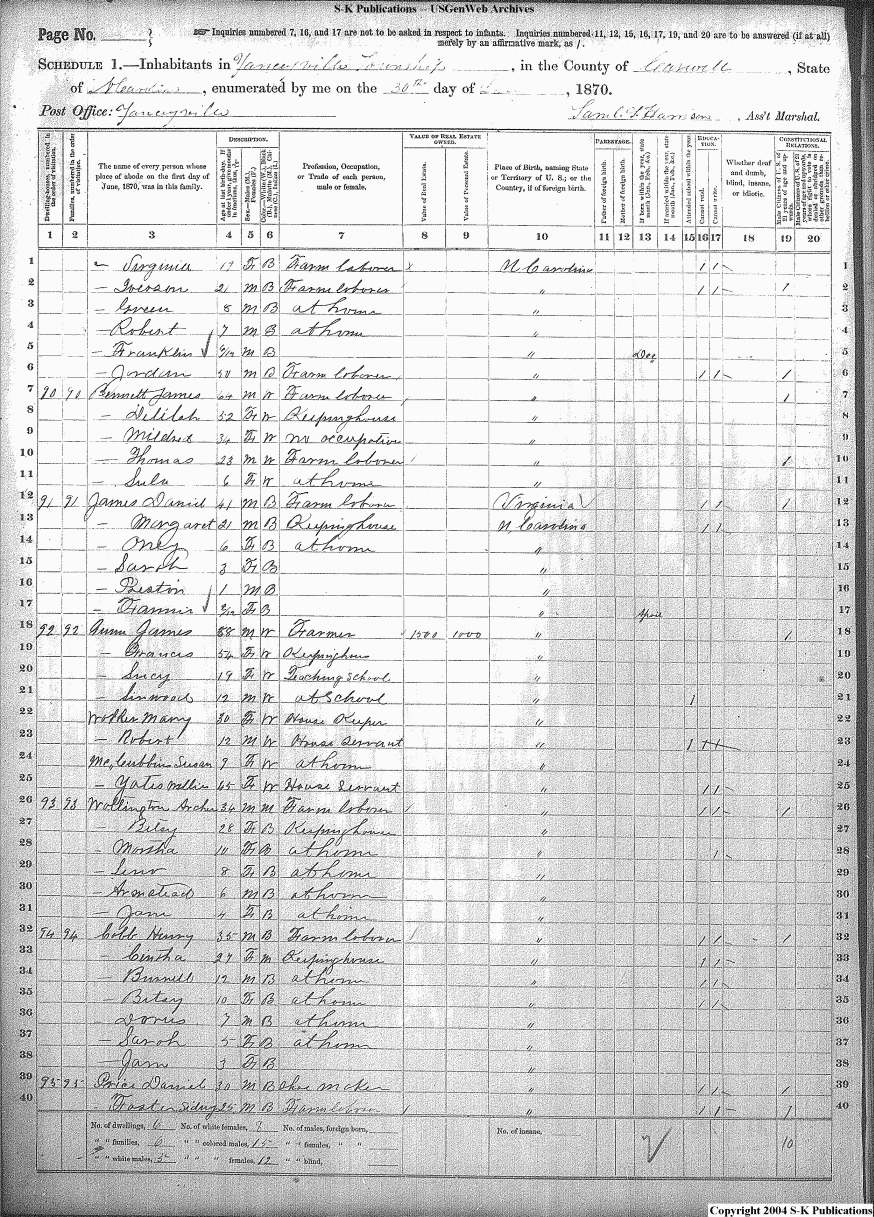 S-K Publications -- USGenWeb Archives
Page No.
Inquiries numbered 7, 16, and 17 are not to be asked in respect to infants. Inquiries numbered 11, 12, 15, 16, 17, 19, and 20 are to be answered (if at all)
merely by an affirmative mark, as /.
SCHEDULE 1.—Inhabitants in Yanceyville Township, in the County of Caswell, State
of N Carolina, enumerated by me on the 30th day of, 1870.
Post Office: Yanceyville
Ass't Marshal.
Dwelling-houses, numbered in the order of visitation.
Families, numbered in the order of visitation.
The name of every person whose place of abode on the first day of June, 1870, was in this family.
DESCRIPTION.
Profession, Occupation, or Trade of each person, male or female.
VALUE OF REAL ESTATE OWNED.
Value of Real Estate.
Value of Personal Estate.
Place of Birth, naming State or Territory of U. S.; or the Country, if of foreign birth.
PARENTAGE.
Father of foreign birth.
Mother of foreign birth.
EDUCATION.
Cannot read.
Cannot write.
Whether deaf and dumb, blind, insane, or idiotic.
CONSTITUTIONAL RELATIONS.
1 2 3 4 5 6 7 8 9 10 11 12 13 14 15 16 17 18 19 20
1 – Virginia 19 F B Farm laborer N Carolina / / 1
2 – Iverson 21 M B Farm laborer " / / / 2
3 – Green 8 M B at home " 3
4 – Robert 7 M B at home " 4
5 – Franklin M B " Dec 5
6 – Jordan 50 M B Farm laborer " / / / 6
7 90 90 Bennett James 64 M W Farm laborer " / 7
8 – Delilah 52 F W Keeping house " 8
9 – Mildred 34 F W no occupation " 9
10 – Thomas 23 M W Farm laborer " / 10
11 – Sula 6 F W at home " 11
12 91 91 James Daniel 41 M B Farm laborer Virginia / / / 12
13 – Margaret 21 M B Keeping house N. Carolina / / 13
14 – Oney 6 F B at home " 14
15 – Sarah 3 F B " 15
16 – Preston 1 M B " 16
17 – Fannie F B " April 17
18 92 92 Gunn James 58 M W Farmer 1500 1000 " / 18
19 – Francis 54 F W Keeping house " 19
20 – Lucy 19 F W Teaching School " 20
21 – Linwood 12 M W at School " / 21
22 Walker Mary 30 F W House Keeper " 22
23 – Robert 12 M W House Servant " / / / 23
24 McCubbin Susan 9 F W at home " 24
25 – Yates 65 F W House Servant " / / 25
26 93 93 Wollington Archer 34 M M Farm laborer " / / / 26
27 – Betsy 28 F B Keeping house " 27
28 – Morsha 10 F B at home " / 28
29 – 8 F B at home " 29
30 – Armstead 6 M B at home " 30
31 – Jane 4 F B at home " 31
32 94 94 Cobb Henry 35 M B Farm laborer " / / / 32
33 – Cintha 27 F M Keeping house " / / 33
34 – Burnell 12 M B at home " / / 34
35 – Betsy 10 F B at home " / / 35
36 – 7 M B at home " 36
37 – Sarah 5 F B at home " 37
38 – Jane 3 F B " 38
39 95 95 Price Daniel 30 M B Shoe maker " / / / 39
40 – Foster Sidney 25 M B Farm laborer " / / / 40
No. of dwellings, 6 No. of white females, 8 No. of males, foreign born, No. of insane,
" " families, 6 " " colored males, 15 " " females, " " 10
" " white males, 5 " " " females, 12 " " blind,
Copyright 2004 S-K Publications